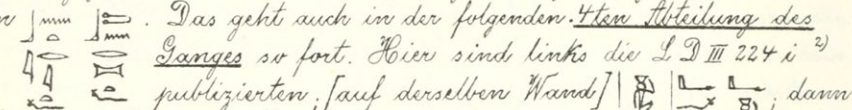 . Das geht auch in der folgenden 4ten Abteilung des
Ganges so fort. Hier sind links die L D III 224 i 2)
publizierten, [auf derselben Wand] ; dann